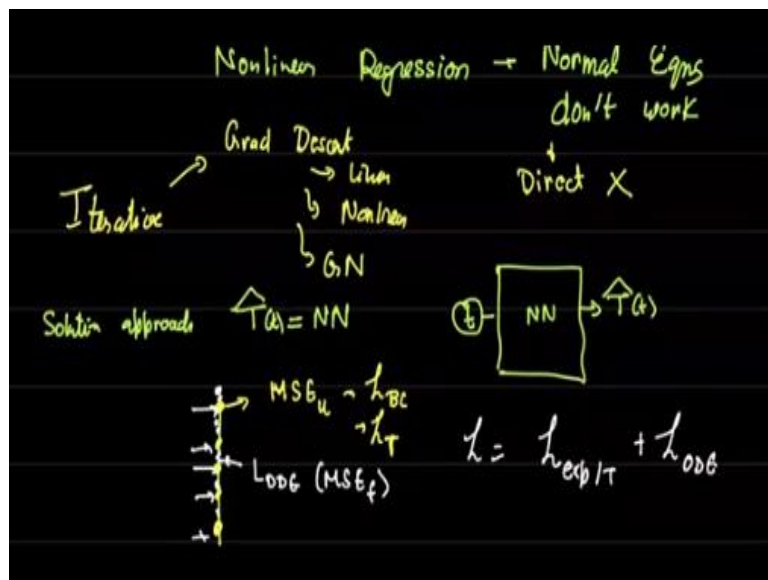 Nonlinear Regression → Normal Eqns
don't work
Direct X
Grad Descent
Iterative
→ Linear
Nonlinear
GN
Solution approach T̂(t) = NN
t NN → T̂(t)
MSE_u → L_BC
→ L_T
L_ODE (MSE_f)
L = L_exp/T + L_ODE